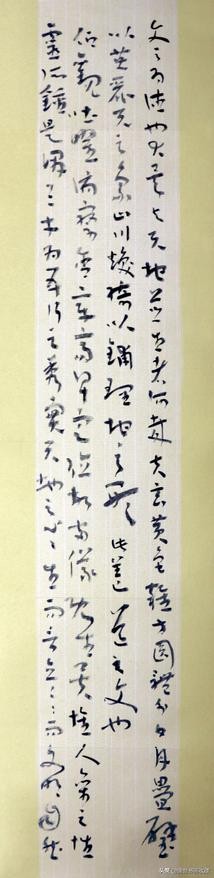 文之為德也大矣與天地並生者何哉夫玄黃色雜方圓體分日月疊璧
以垂麗天之象山川煥綺以鋪理地之形此蓋道之文也
仰觀吐曜俯察含章高卑定位故兩儀既生矣惟人參之性
靈所鍾是謂三才為五行之秀實天地之心心生而言立言立而文明自然